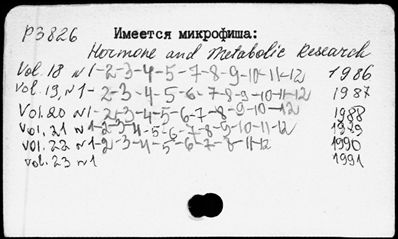 Р3826 Имеется микрофиша:
Hormone and Metabolic Research
Vol. 18 N1-2-3-4-5-7-8-9-10-11-12 1986
Vol. 19, N1-2-3-4-5-6-7-8-9-10-11-12 1987
Vol. 20 N1-2-3-4-5-6-7-8-9-10-12 1988
Vol. 21 N1-2-3-4-5-6-7-8-9-10-11-12 1989
Vol. 22 N1-2-3-4-5-6-7-8-11-12 1990
Vol. 23 N1 1991